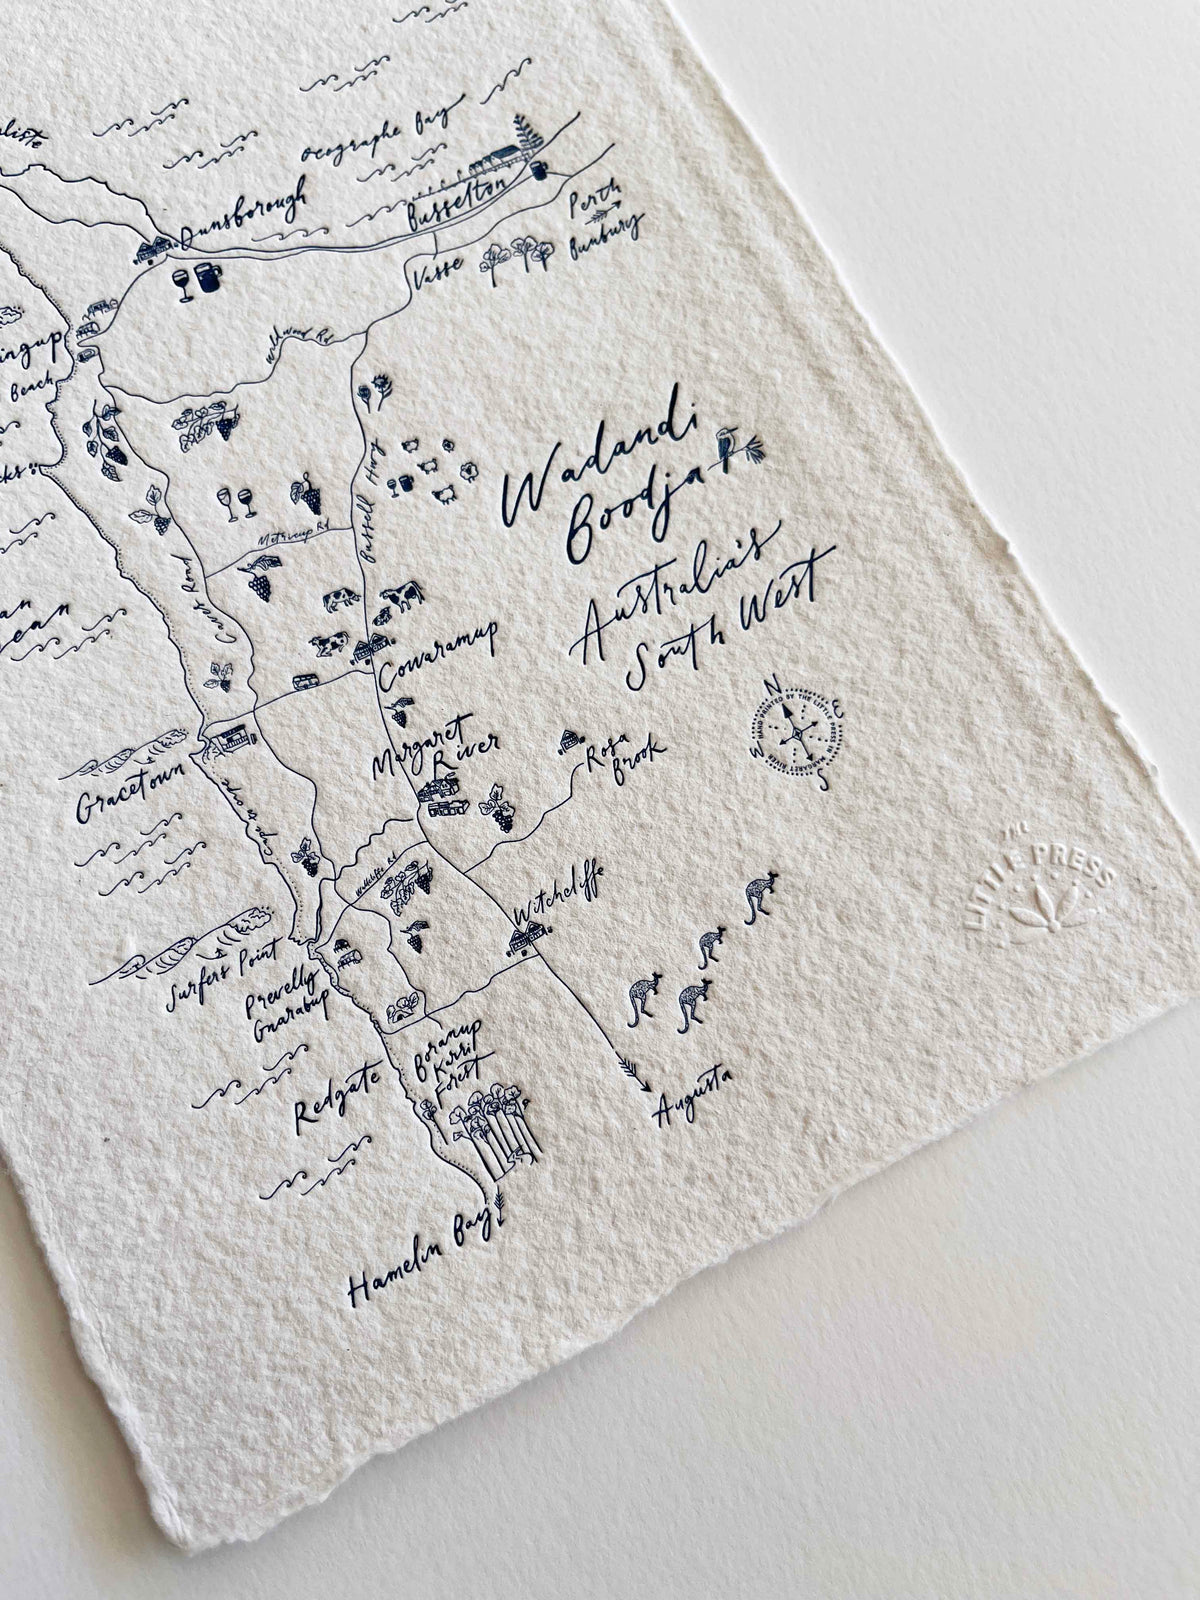 Geographe Bay
Dunsborough
Busselton
Perth
Bunbury
Vasse
Wildwood Rd
Beach
Bussell Hwy
Wadandi
Boodja
Australia's
South West
Metricup Rd
Caves Road
Cowaramup
N
E
S
W
HAND PRINTED BY THE LITTLE PRESS IN MARGARET RIVER
Margaret
River
Rosa
Brook
Gracetown
Cape to Cape
Wallcliffe Rd
Witchcliffe
THE
LITTLE PRESS
Surfers Point
Prevelly
Gnarabup
Boranup
Karri
Forest
Redgate
Augusta
Hamelin Bay